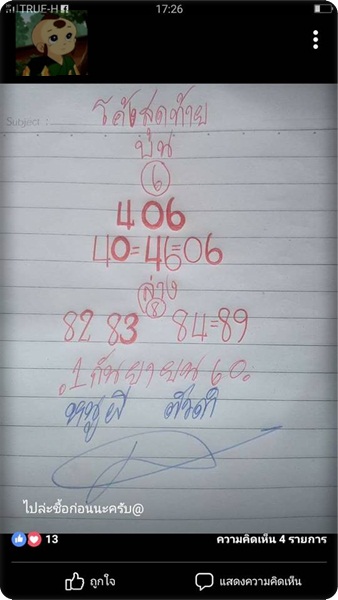 TRUE-H
17:26
Subject :
โค้งสุดท้าย
บน
6
406
40=46=06
ล่าง
8
82 83 84=89
1 กันยายน 60
ไปล่ะซื้อก่อนนะครับ@
13
ความคิดเห็น 4 รายการ
ถูกใจ
แสดงความคิดเห็น